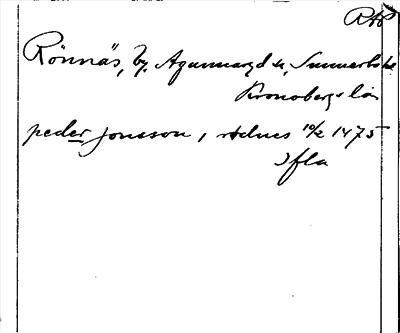 RAP
Rönnäs, by, Agunnaryd sn, Sunnerbo hd
Kronobergs län
peder jonsson, utdues 10/2 1475
Sfla